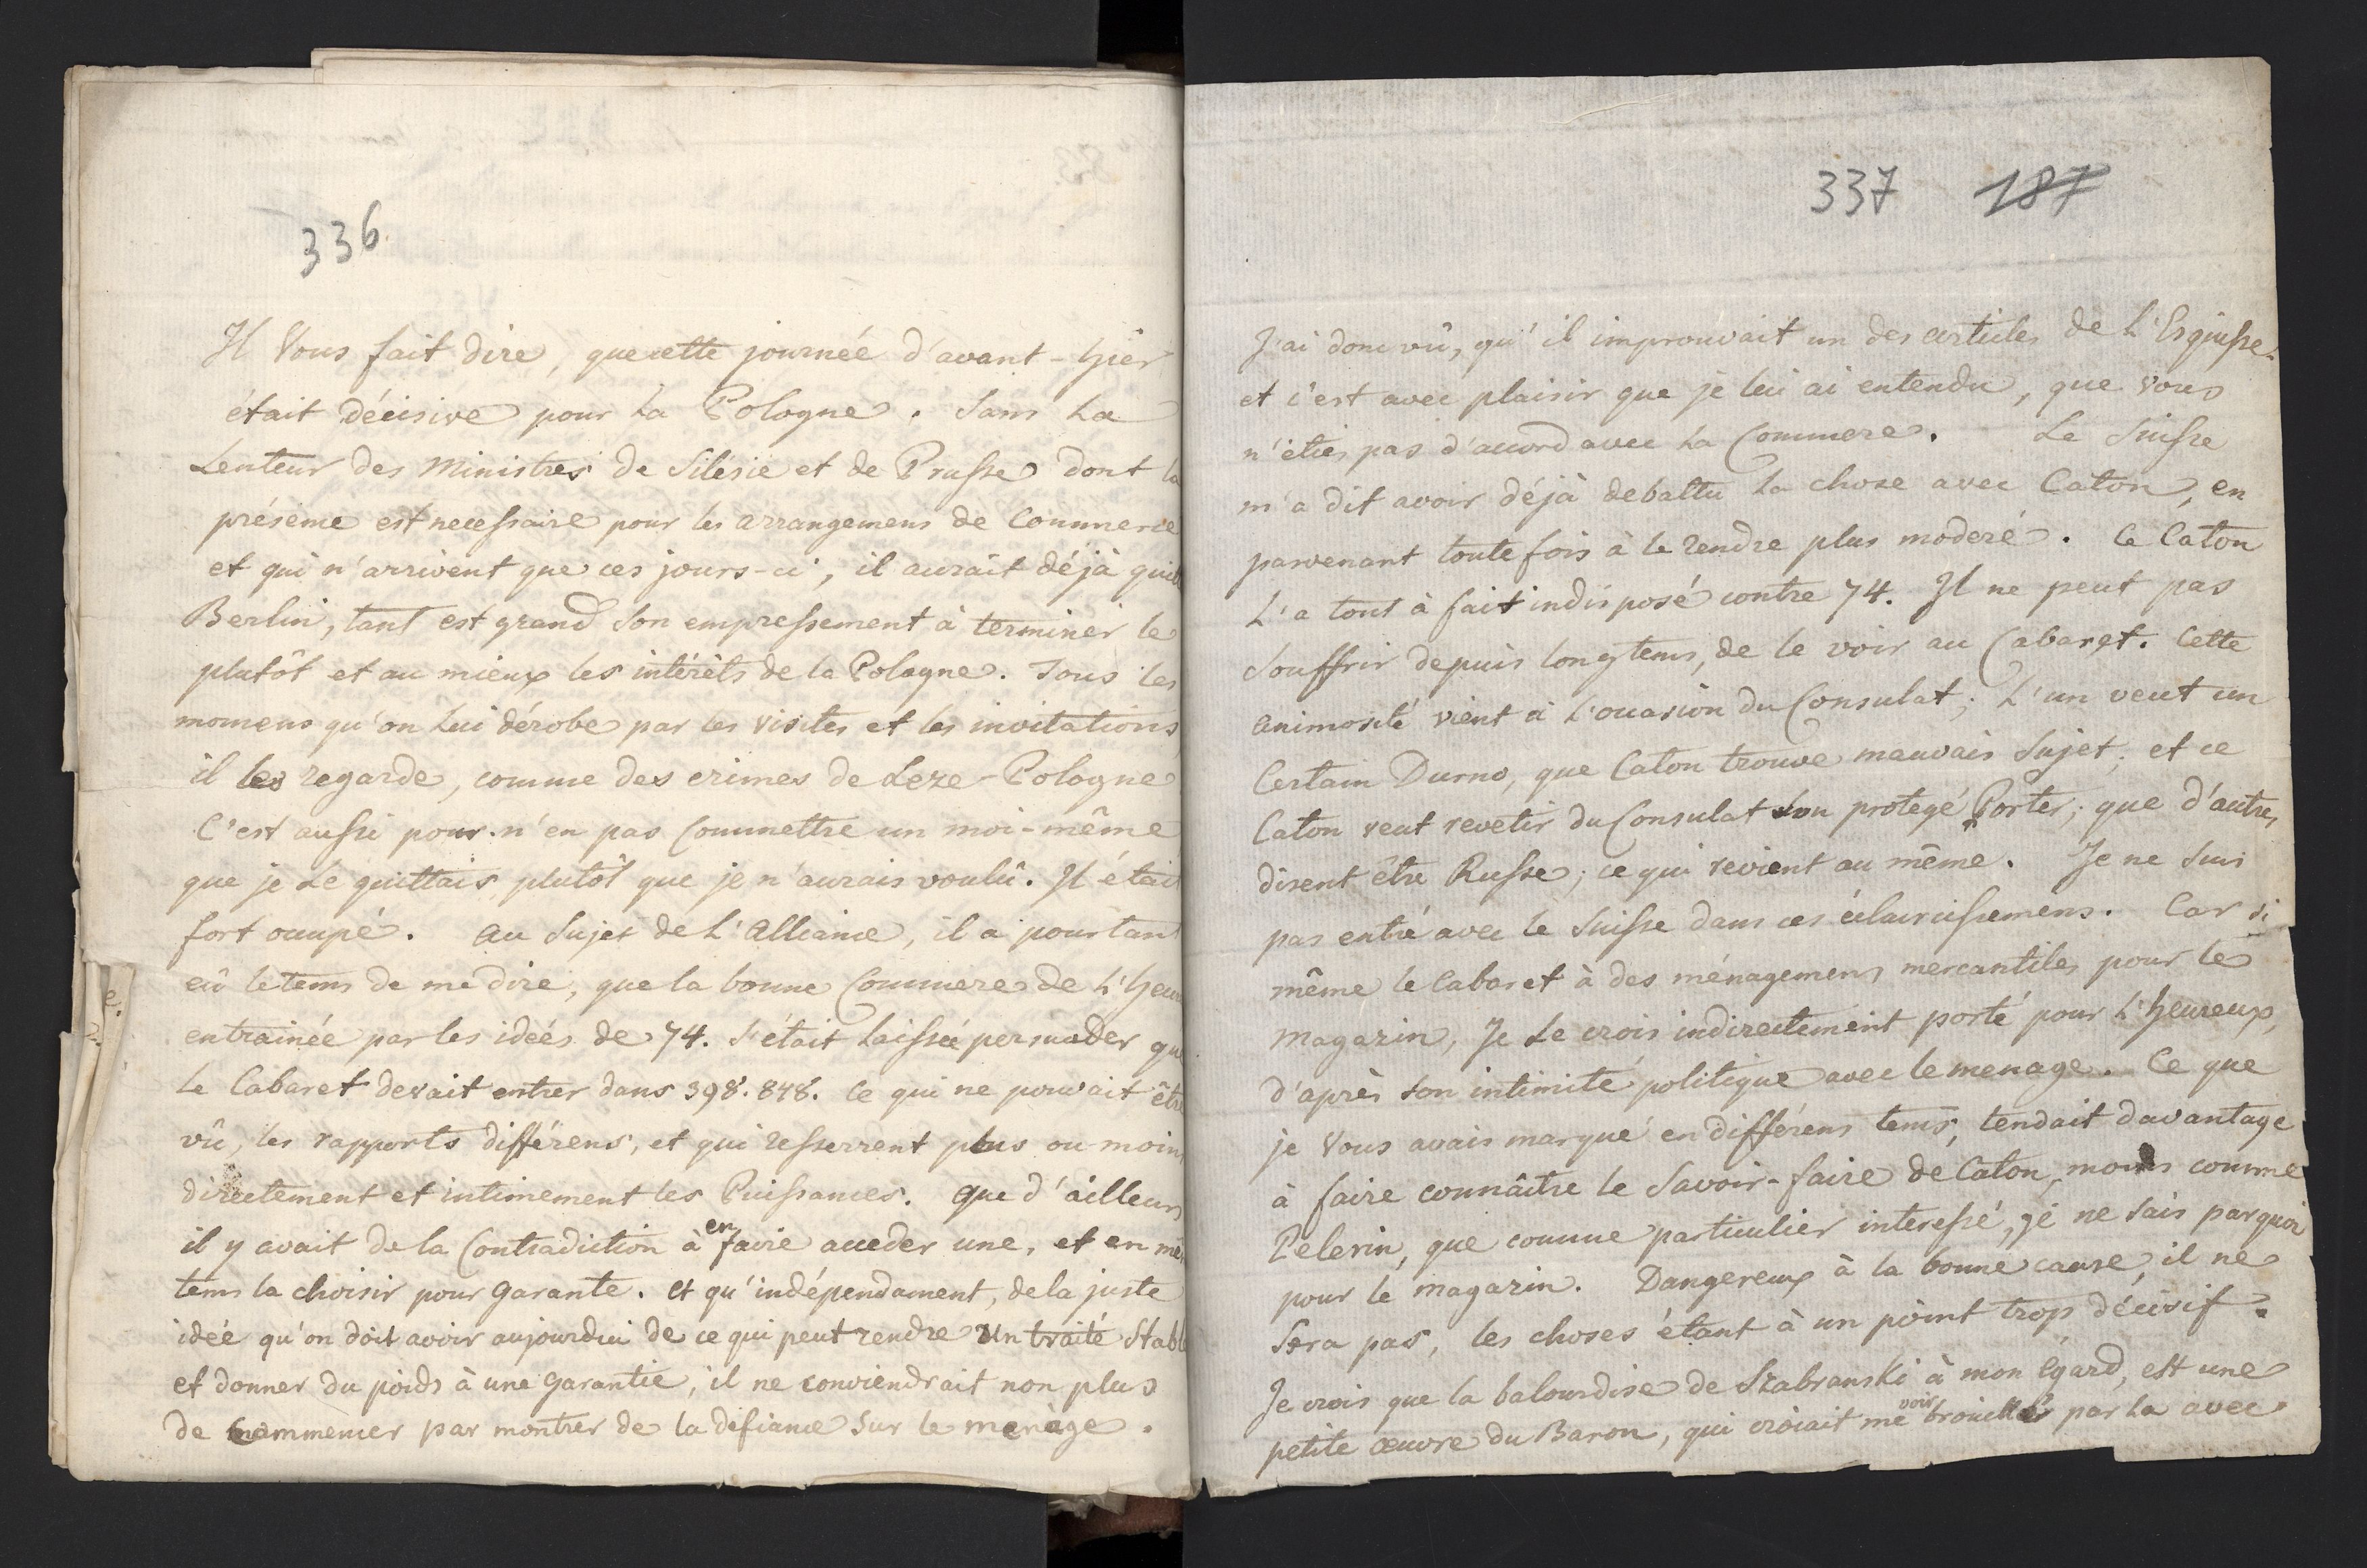 336
Il Vous fait dire, que cette journeé d'avant-hier
était décisive pour la Pologne. Sans la
Lenteur des Ministres de Silésie et de Prusse dont la
présence est necessaire pour les arrangemens de Commerce
et qui n'arrivent que ces jours-ci, il aurait déjà
Berlin, tant est grand son empressement à terminer le
plutôt et au mieux les intérêts de la Pologne. Tous les
momens qu'on Lui dérobe par les visites et les invitations
il les regarde, comme des crimes de Leze-Pologne
C'est aussi pour n'en pas Commettre un moi-même
que je Le quittais plutôt que je n'aurais voulû. Il était
fort occupé. Au Sujet de L'Alliance, il a pourtant
eû le tems de me dire, que la bonne Commere de L'
entrainée par les ideés de 74. s'était laissée persuader que
Le Cabaret devait entrer dans 398. 848. Ce qui ne pouvait être
vû, les rapports différens, et qui resserrent plus ou moins
directement et intimement les Puissances. Que d'ailleurs
il y avait de la Contradiction à en faire acceder une, et en
tems la choisir pour garante. Et qu'indépendament, de la juste
idée qu'on doit avoir aujourdui de ce qui peut rendre Un traité stable
et donner du poids à une garantie, il ne conviendrait non plus
de commencer par montrer de la défiance sur le menage.
337 187
J'ai donc vû, qu'il improuvait un des articles de L'Esquisse
et c'est avec plaisir que je lui ai entendu, que vous
n'étiés pas d'accord avec la Commere. Le Suisse
m'a dit avoir déjà debattu la chose avec Caton, en
parvenant toute fois à le rendre plus moderé. Ce Caton
L'a tout à fait indisposé contre 74. Il ne peut pas
Souffrir depuis longtems, de le voir au Cabaret. Cette
animosité vient à l'occasion du Consulat; L'un veut un
Certain Durno, que Caton trouve mauvais Sujet; et ce
Caton veut revetir du Consulat son protegé Porter; que d'autres
disent être Russe; ce qui revient au même. Je ne suis
pas entré avec le Suisse dans ces éclaircissemens. Car si
même le Cabaret à des ménagemens mercantiles pour le
magazin, Je Le crois indirectement porté pour L'heureux,
d'après son intimité politique avec le menage. Ce que
je Vous avais marqué en différens tems, tendait davantage
à faire connâitre le Savoir-faire de Caton, moins comme
Pelerin, que comme particulier interessé, je ne sais par quoi
pour le magazin. Dangereux à la bonne cause, il ne
Sera pas, les choses étant à un point trop décisif.
Je crois que la balourdise de Szabranski à mon égard, est une
petite œuvre du Baron, qui croiait me voir brouillé par la avec